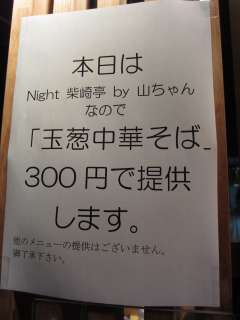 本日は
Night 柴崎亭 by 山ちゃん
なので
「玉葱中華そば」
300円で提供
します。
他のメニューの提供はございません。
御了承下さい。